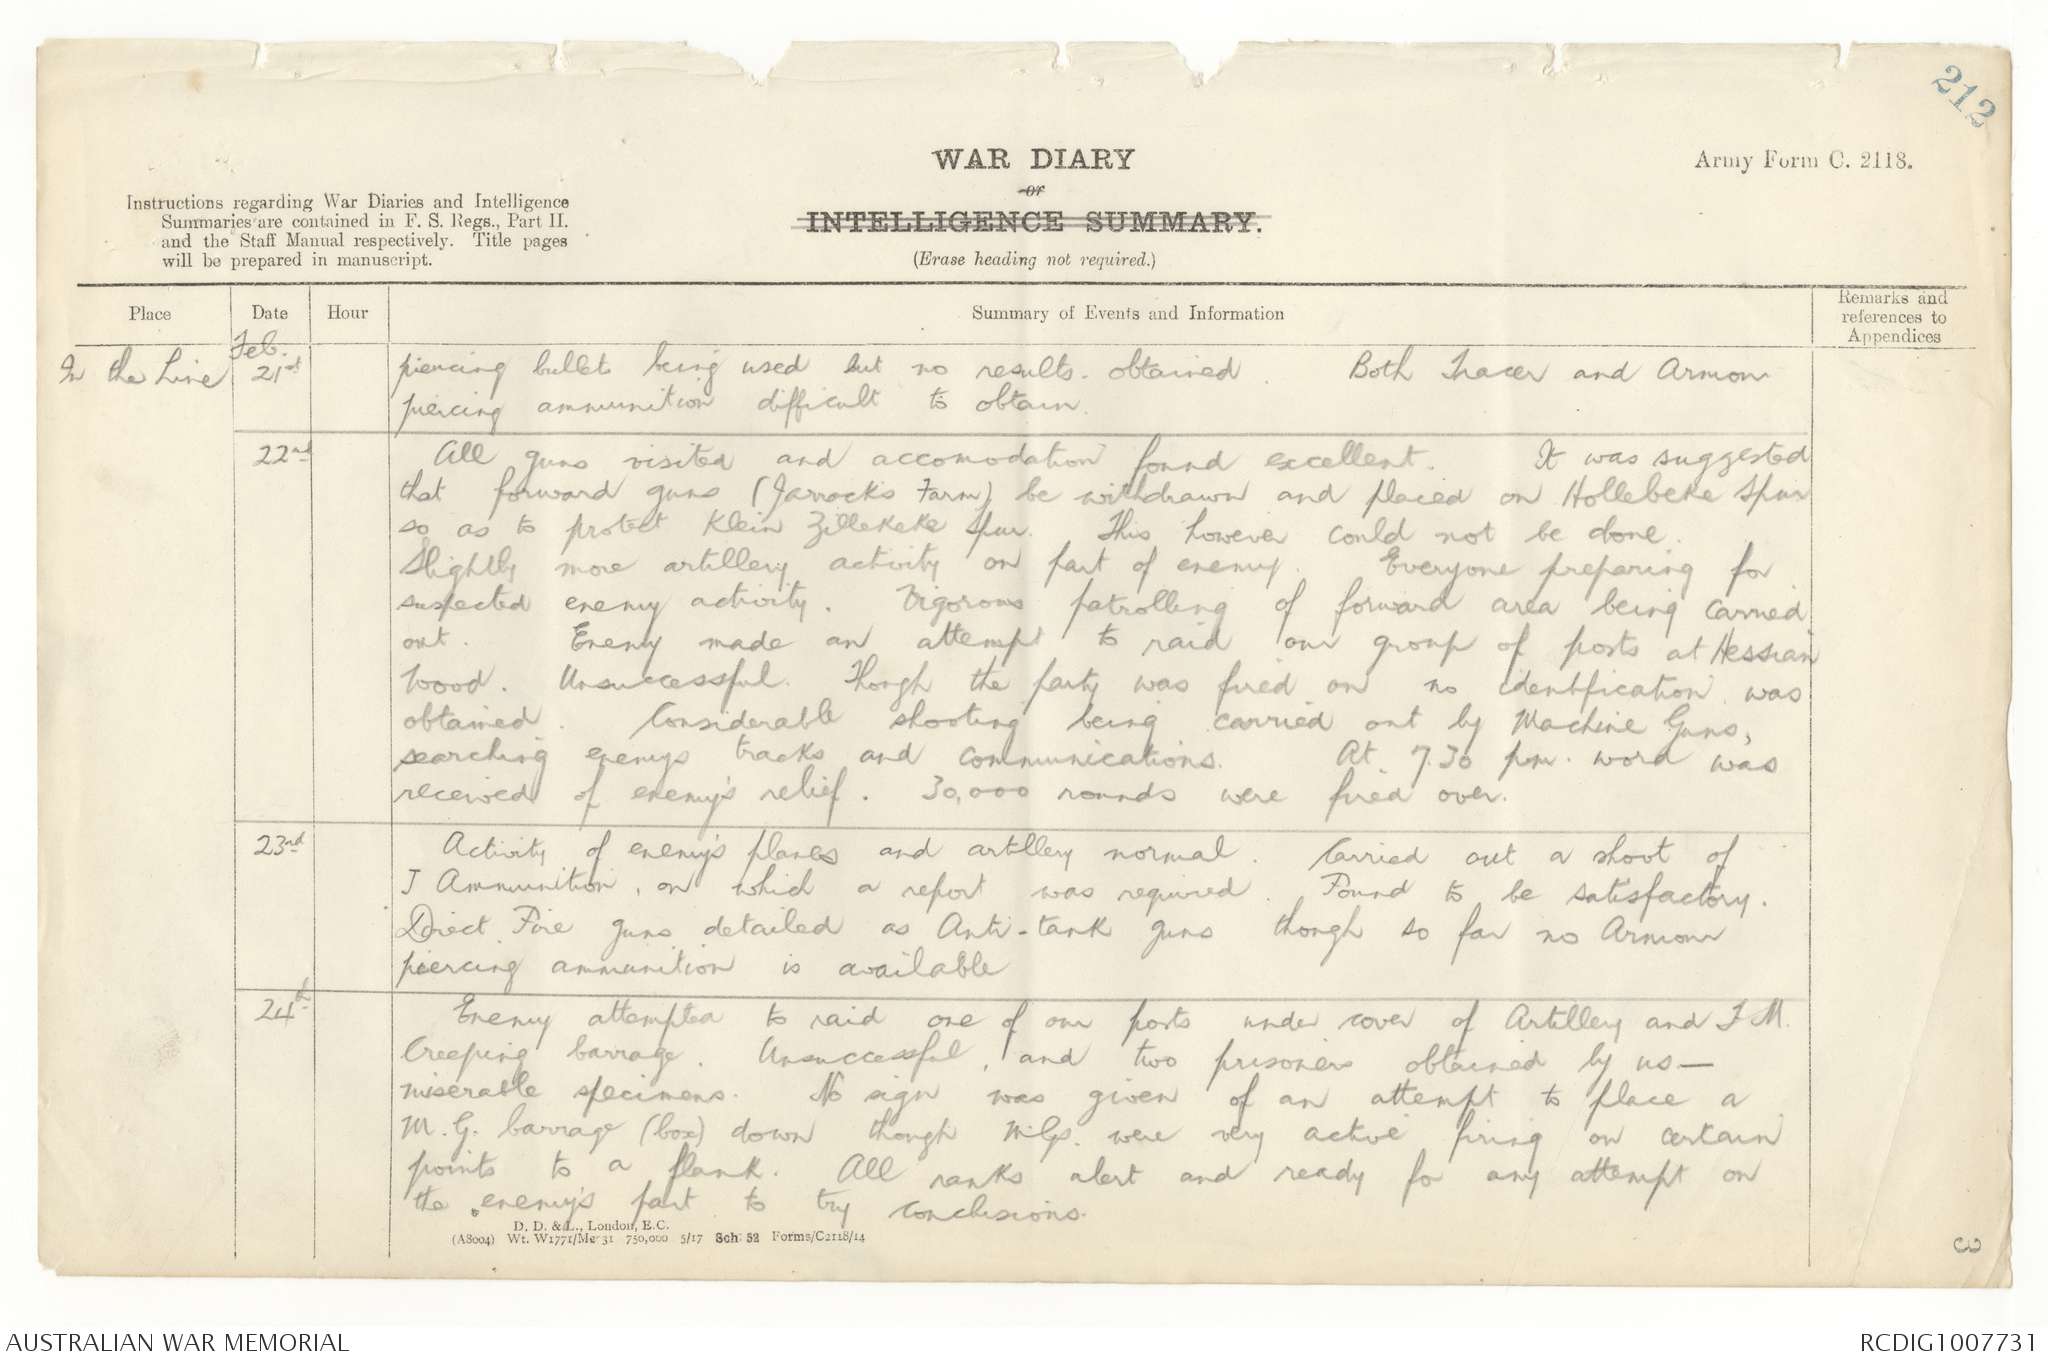 212
WAR DIARY
or
INTELLIGENCE SUMMARY.
(Erase heading not required.)
Army Form C. 2118.
Instructions regarding War Diaries and Intelligence
Summaries are contained in F. S. Regs., Part II.
and the Staff Manual respectively. Title pages
will be prepared in manuscript.
Place
Date
Hour
Summary of Events and Information
Remarks and
references to
Appendices
In the Line
Feb.
21st
piercing bullets being used but no results obtained. Both Tracer and Armour
piercing ammunition difficult to obtain.
22nd
All guns visited and accomodation found excellent. It was suggested
that forward guns (Jarrocks Farm) be withdrawn and placed on Hollebeke Spur
so as to protect Klein Zillekeke Spur. This however could not be done.
Slightly more artillery activity on part of enemy. Everyone preparing for
suspected enemy activity. Vigorous patrolling of forward area being carried
out. Enemy made an attempt to raid our group of posts at Hessian
Wood. Unsuccessful. Though the party was fired on no identification was
obtained. Considerable shooting being carried out by Machine Guns,
searching enemys tracks and communications. At 7.30 pm. word was
received of enemy's relief. 30,000 rounds were fired over.
23rd
Activity of enemy's planes and artillery normal. Carried out a shoot of
J Ammunition, on which a report was required. Found to be satisfactory.
Direct Fire guns detailed as Anti-tank guns though so far no Armour
piercing ammunition is available
24th
Enemy attempted to raid one of our posts under cover of Artillery and T M.
Creeping barrage. Unsuccessful, and two prisoners obtained by us—
miserable specimens. No sign was given of an attempt to place a
M.G. barrage (box) down though M.Gs. were very active firing on certain
points to a flank. All ranks alert and ready for any attempt on
the enemy's part to try conclusions.
D. D. & L., London, E.C.
(A8004) Wt. W1771/M2 31 750,000 5/17 Sch. 52 Forms/C2118/14
3
AUSTRALIAN WAR MEMORIAL
RCDIG1007731